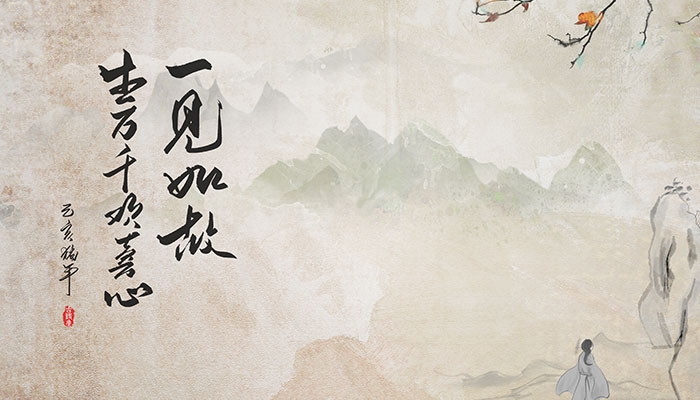 一见如故
生万千欢喜心
己亥猪年